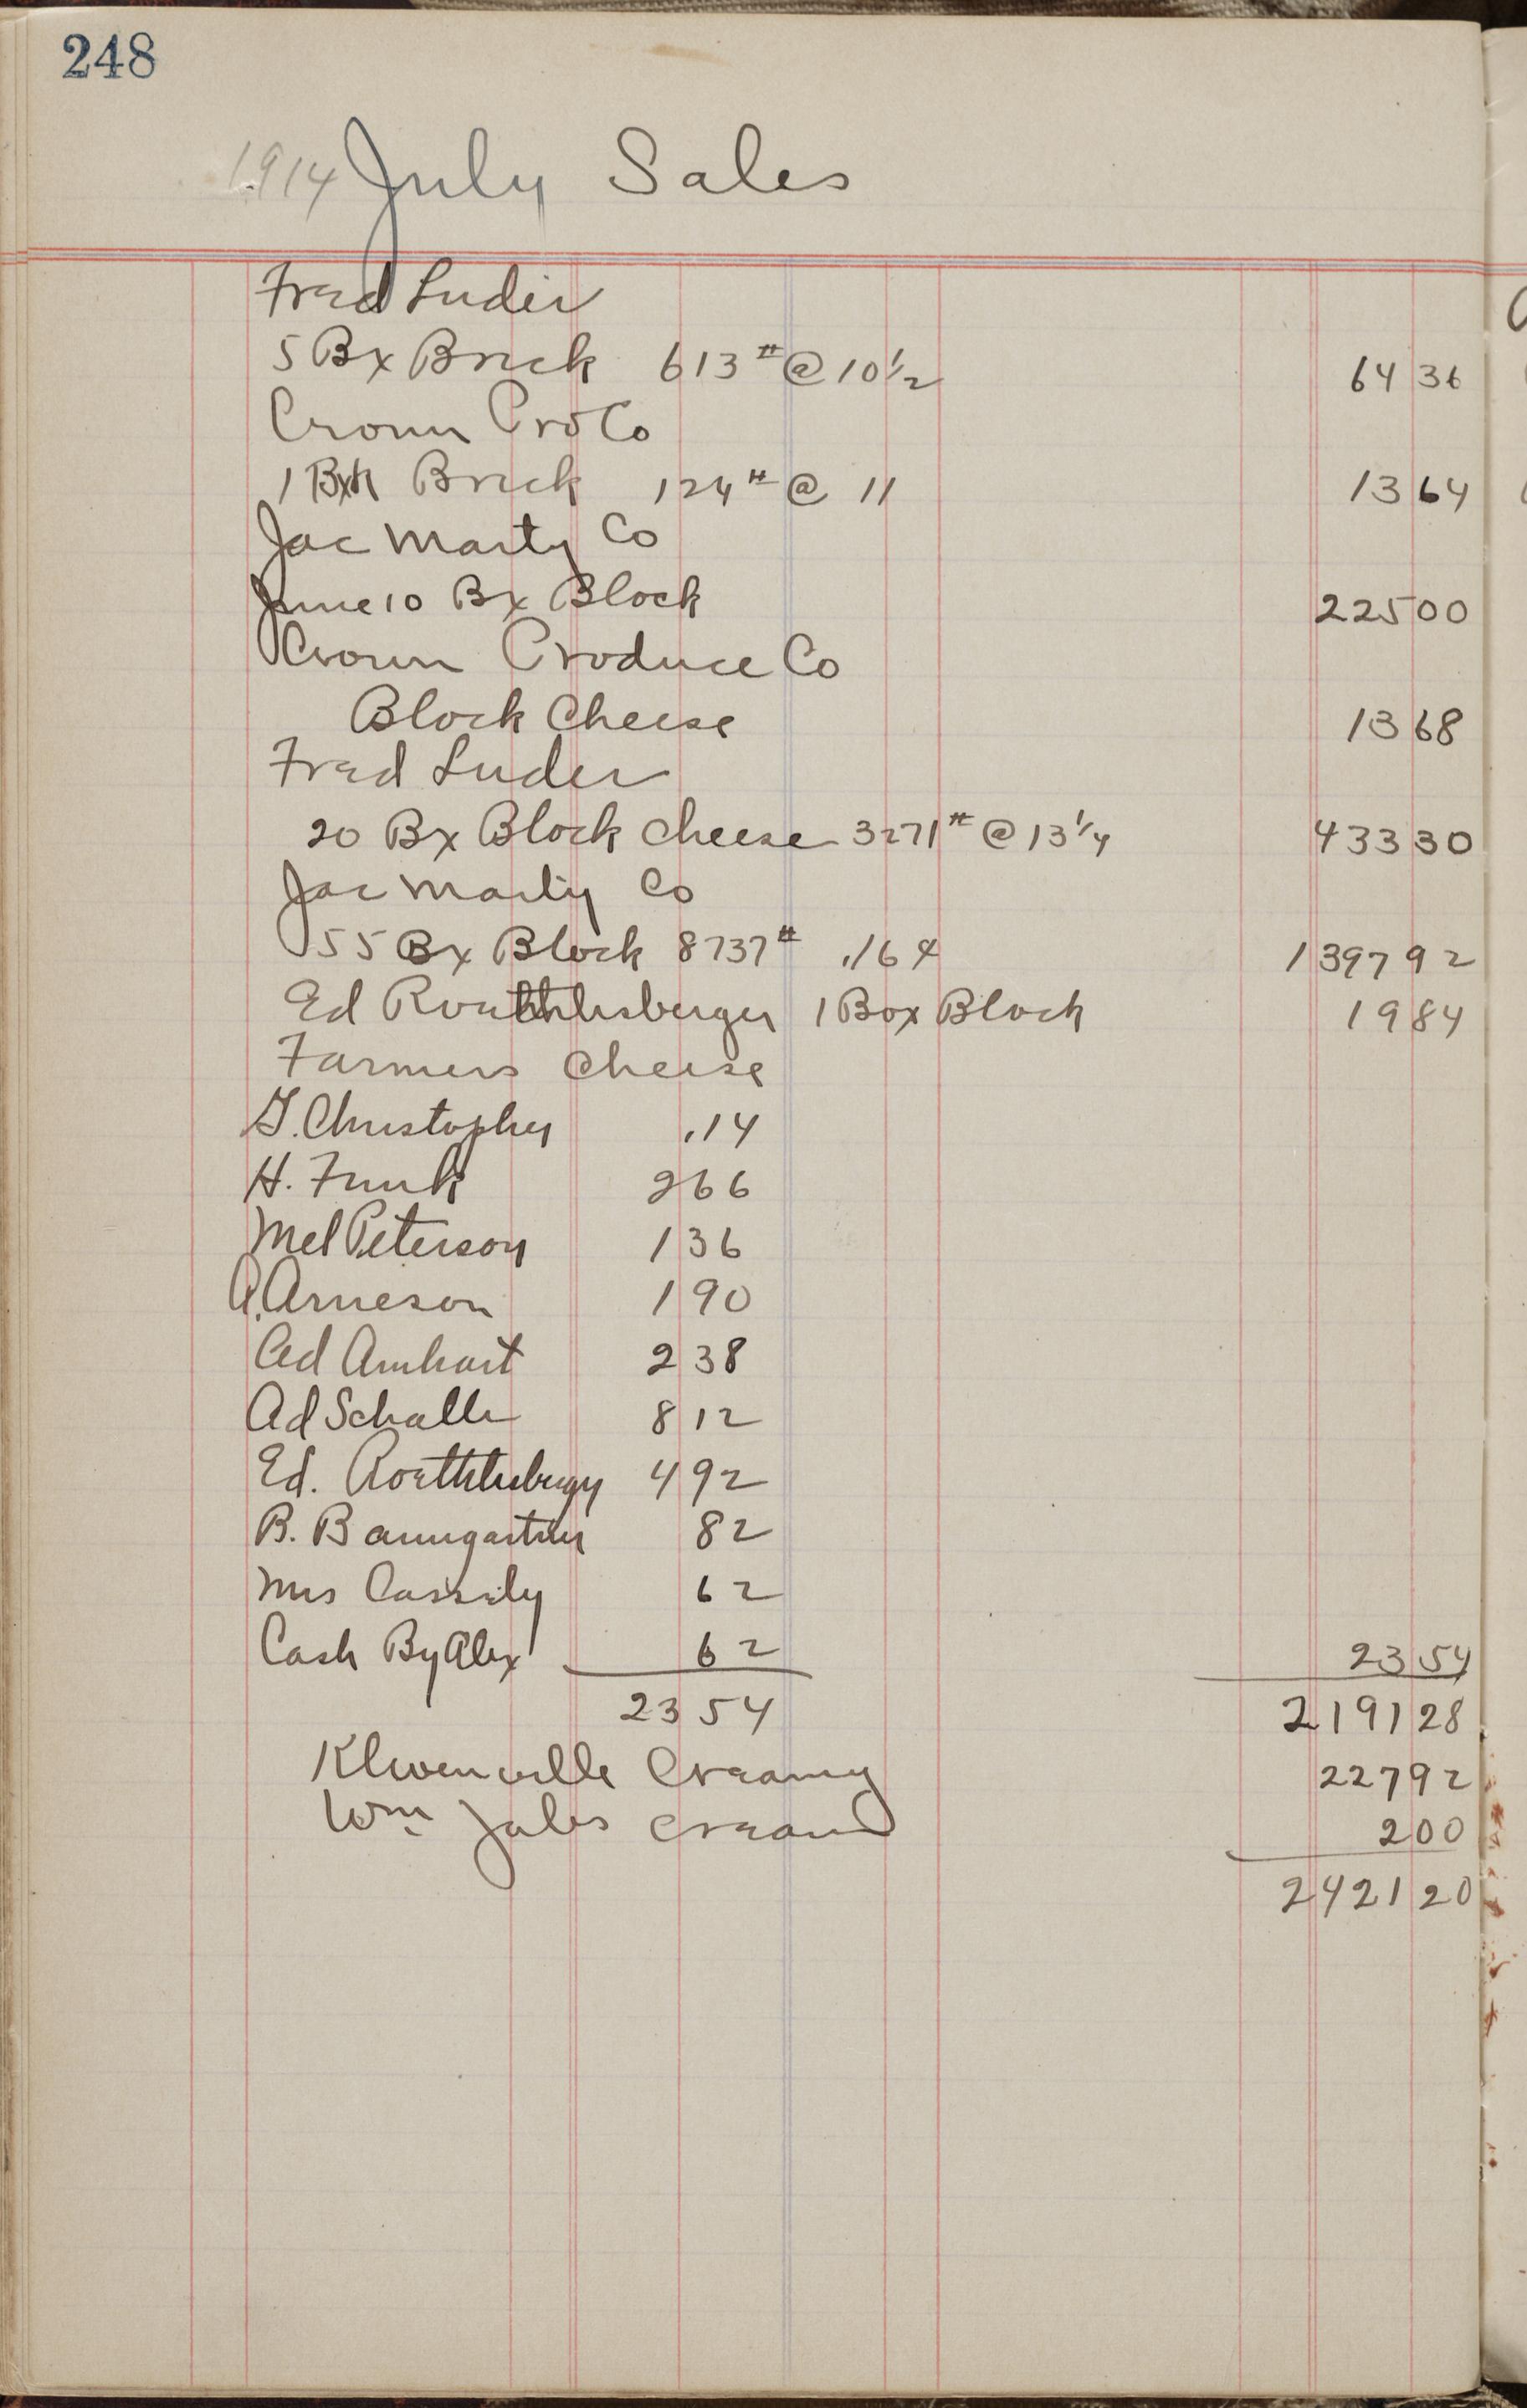 248
1914 July Sales
Fred Luder
5 Bx Brick 613# @ 10 1/2 64 36
Crown Pro Co
1 Bx Brick 124# @ 11 13 64
Jac Marty Co
June 10 Bx Block 225 00
Crown Produce Co
Block Cheese 13 68
Fred Luder
20 Bx Block cheese 3271# @ 13 1/4 433 30
Jac Marty Co
55 Bx Block 8737# .16 1397 92
Ed 1 Box Block 19 84
Farmers Cheese
G. Christopher .14
H. Funk 2 66
Mel Peterson 1 36
A. Arneson 1 90
Ad Amhart 2 38
Ad Schaller 8 12
Ed. 4 92
B. Baumgartner 82
Mrs Cassidy 62
Cash By Alex 62 23 54
23 54 2191 28
Creamery 227 92
Wm Cream 2 00
2421 20